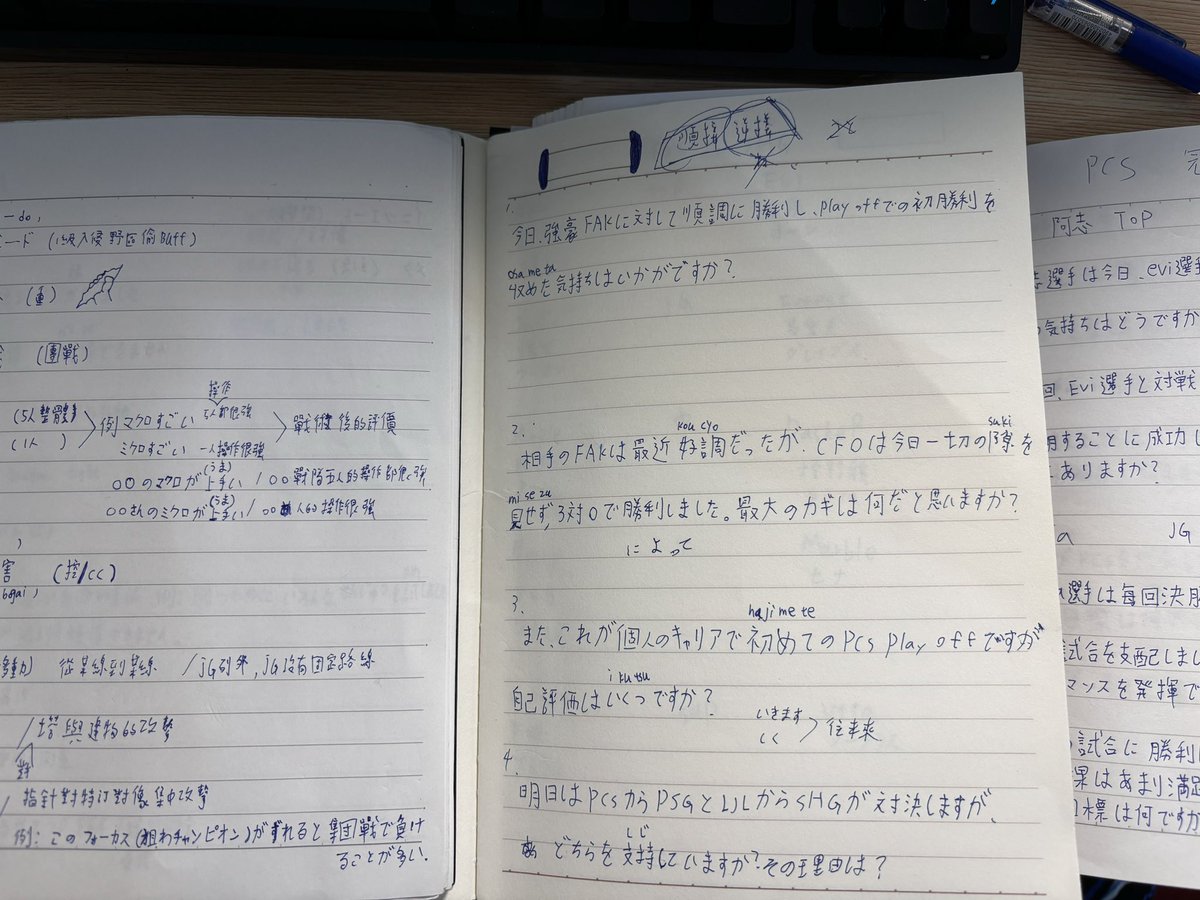 ーdo,
ード (1級入侵野區偷Buff)
(重)
(團戰)
操作
(5人整體) 例 マクロすごい 5人都很強 戰術後的評價
(1人 ) ミクロすごい 一人操作很強
(うま)
○○のマクロが上手い / ○○戰隊五人的操作都很強.
(うま)
○○さんのミクロが上手い / ○○人的操作很強
害 (控/CC)
bogai,
動) 從某線到某線 / JG列外, JG沒有固定路線
/ 塔與建物的攻擊
/ 指針對特訂對像集中攻擊
例: このフォーカス(狙わチャンピオン)がずれると集団戰で負け
ることが多い.
順接 逆接
1.
今日、強豪FAKに対して順調に勝利し、play offでの初勝利を
osa me ta
収めた気持ちはいかがですか?
2.
kou cyo suki
相手のFAKは最近好調だったが、CFOは今日一切の隙を
mi se zu
見せず, 3対0で勝利しました。最大のカギは何だと思いますか?
によって
3.
haji me te
また、これが個人のキャリアで初めてのPCS Play offですが
i ku tsu
自己評価はいくつですか?
いきます
いく 往未來
4.
明日はPCSからPSGとLJLからSHGが対決しますが、
しじ
どちらを支持していますか? その理由は?
PCS
阿志 TOP
選手は今日、evi選手
気持ちはどうですか
回、Evi選手と対戦
用することに成功し
ありますか?
a JG
選手は毎回決勝
試合を支配しまし
マンスを発揮で
試合に勝利
果はあまり満足
目標は何ですか